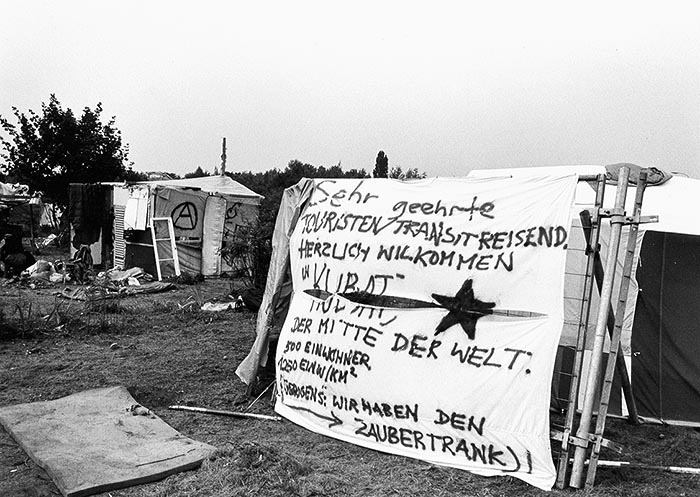 Ⓐ
Sehr geehrte
TOURISTEN/TRANSITREISEND.
HERZLICH WILKOMMEN
IN "KUBAT"
DER MITTE DER WELT:
500 EINWOHNER
EINW/KM²
ÜBRIGENS: WIR HABEN DEN
ZAUBERTRANK)!